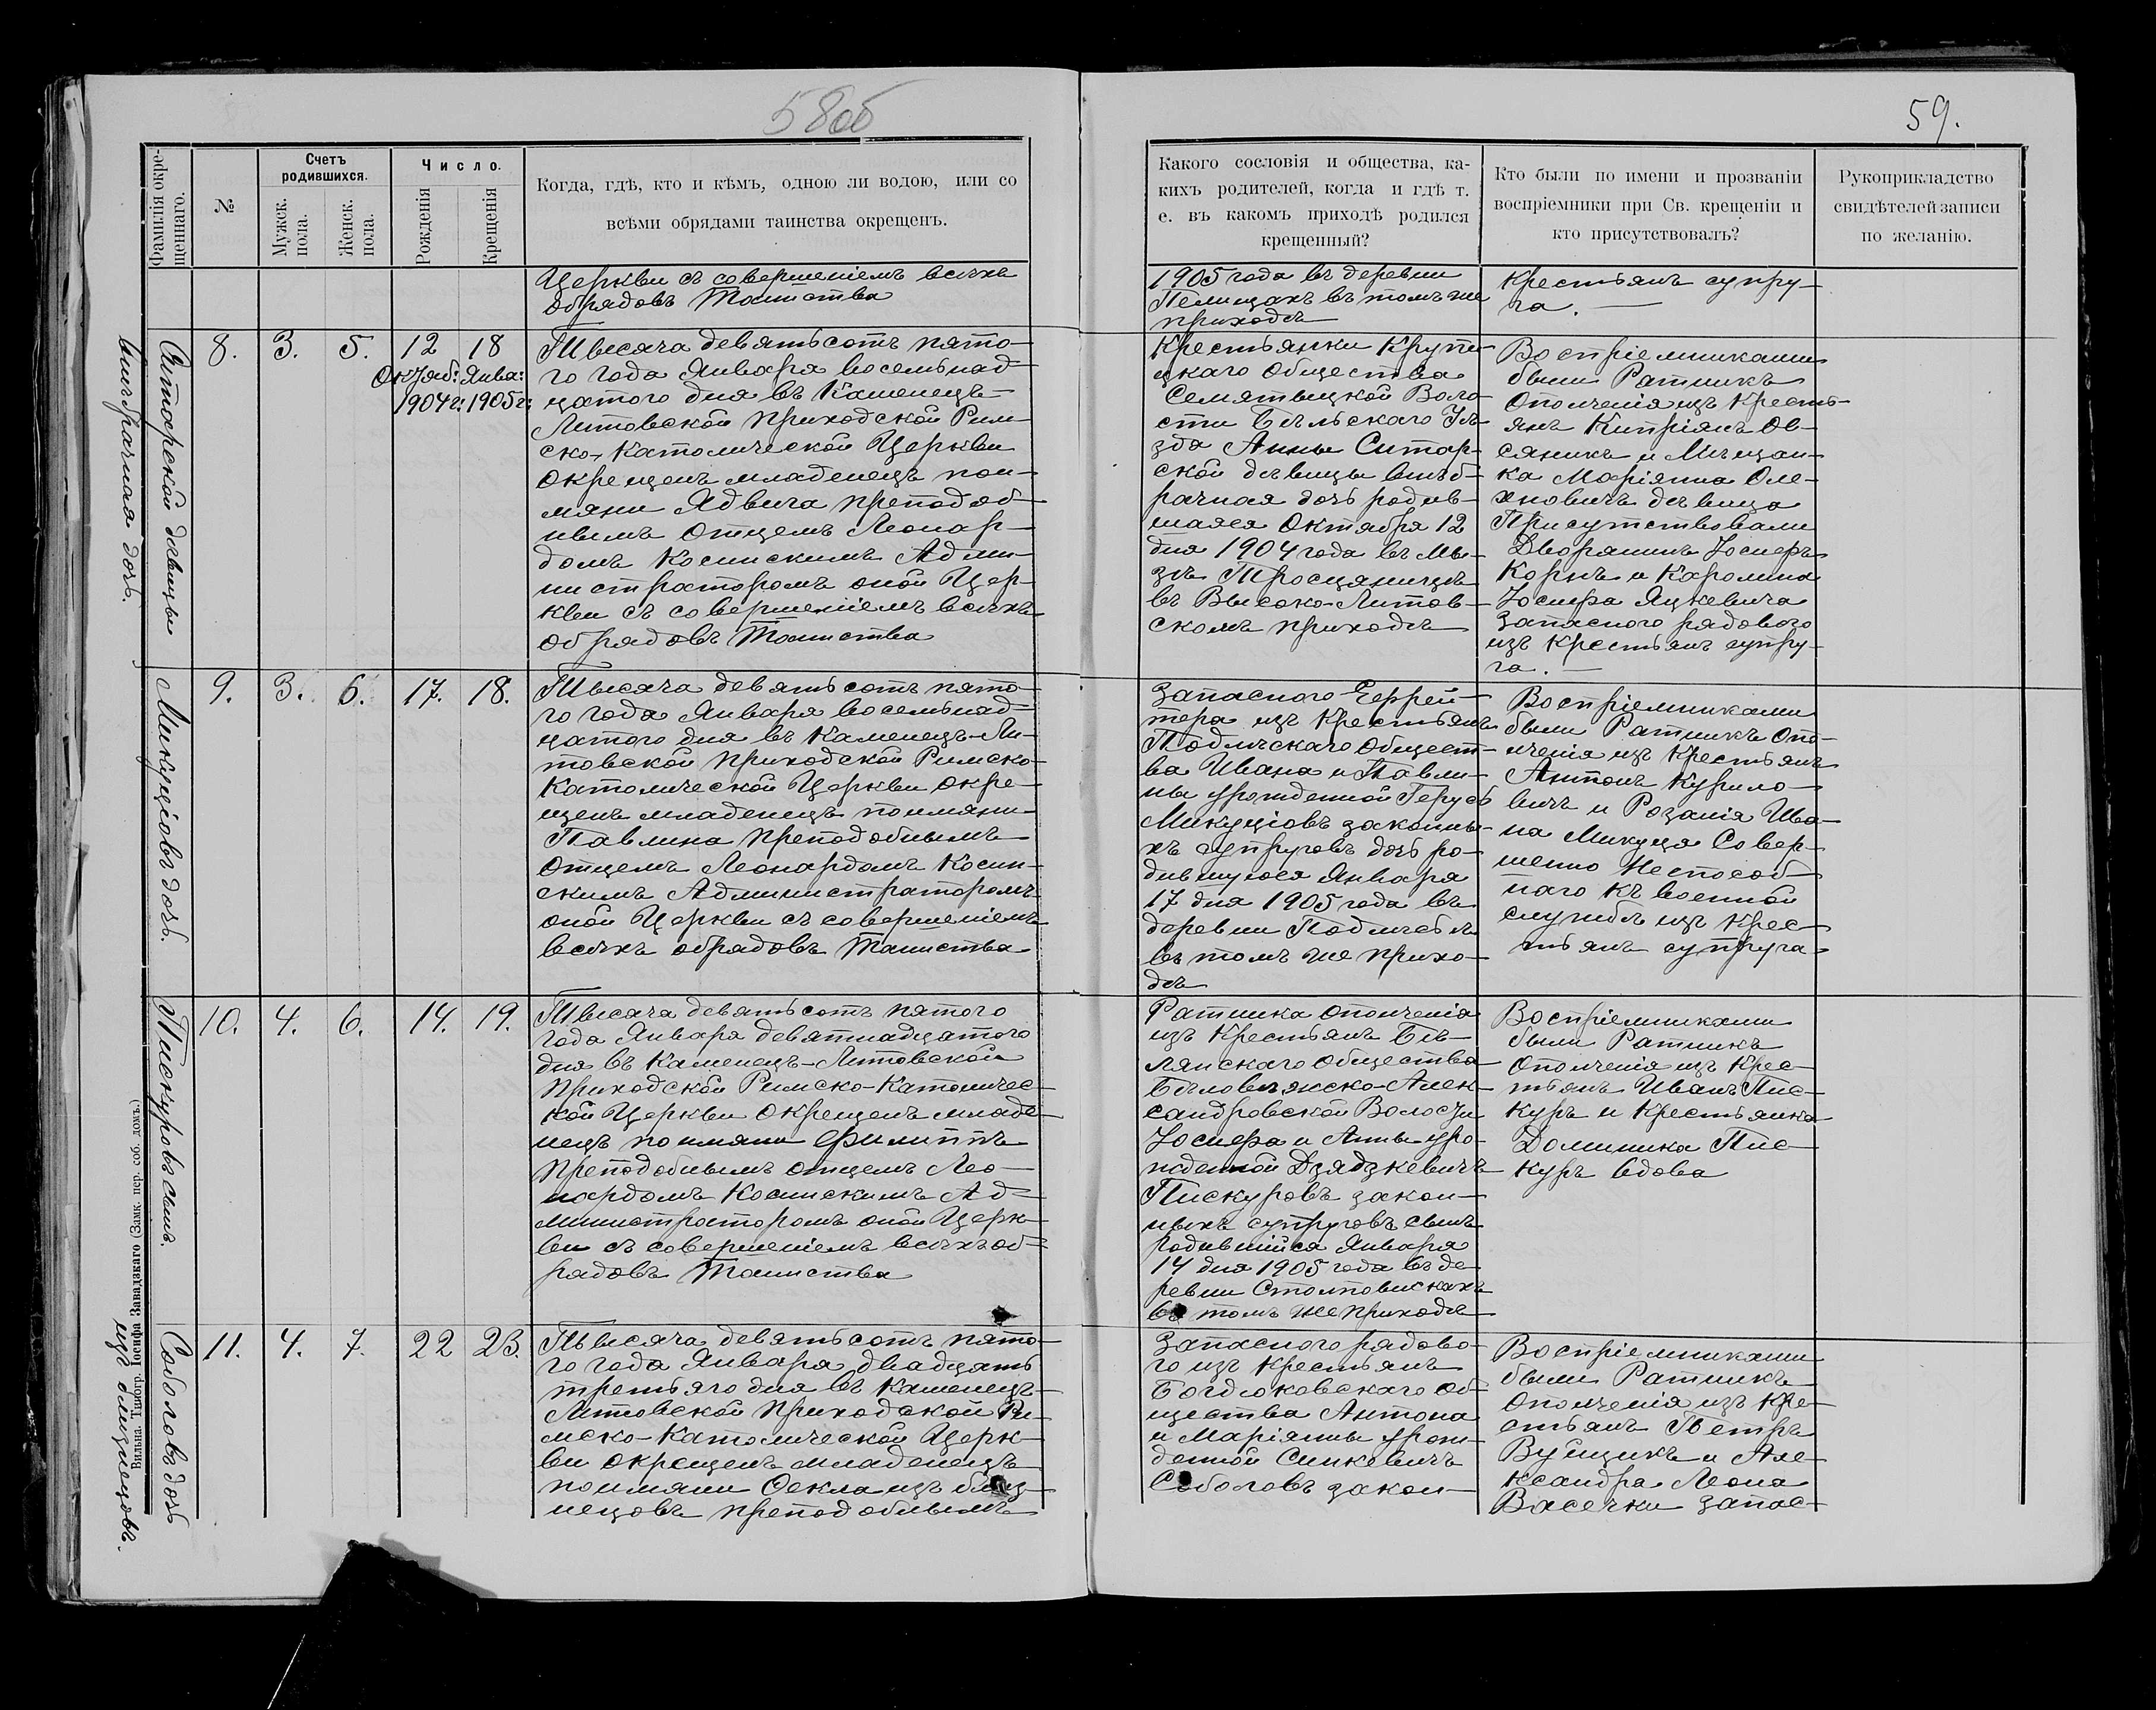 58об
59.
Фамилія окре-
щеннаго.
№
Счетъ
родившихся.
Мужск.
пола.
Женск.
пола.
Число.
Рожденія
Крещенія
Когда, гдѣ, кто и кѣмъ, одною ли водою, или со
всѣми обрядами таинства окрещенъ.
Какого сословія и общества, ка-
кихъ родителей, когда и гдѣ т.
е. въ какомъ приходѣ родился
крещенный?
Кто были по имени и прозваніи
воспріемники при Св. крещеніи и
кто присутствовалъ?
Рукоприкладство
свидѣтелей записи
по желанію.
Церкви съ совершеніемъ всѣхъ
обрядовъ Таинства
1905 года въ деревни
Пелищахъ въ томъ же
приходѣ
Крестьянъ супру-
га.
Ситарской дѣвицы
внѣбрачная дочь.
8.
3.
5.
12
Октяб:
1904 г:
18
Янва:
1905 г:
Тысяча девятьсотъ пято-
го года Января восемьнад-
цатого дня въ Каменецъ-
Литовской Приходской Рим-
ско-Католической Церкви
окрещенъ младенецъ пои-
мяни Ядвига преподоб-
нымъ Отцемъ Леонар-
домъ Косинскимъ Адми-
нистраторомъ оной Цер-
кви съ совершеніемъ всѣхъ
обрядовъ Таинства
Крестьянки Крупи-
цкаго Общества
Семятыцкой Воло-
сти Бѣльскаго Уѣ-
зда Анны Ситар-
ской дѣвицы внѣб-
рачная дочь родив-
шаяся Октября 12
дня 1904 года въ Мы-
зѣ Тросцяницѣ
въ Высоко-Литов-
скомъ приходѣ
Воспріемниками
были Ратникъ
Ополченія изъ Кресть-
янъ Кипріянъ Ов-
сяникъ и Мѣщан-
ка Маріянна Оле-
хновичъ дѣвица
Присутствовали
Дворянинъ Іосифъ
Корнъ и Каролина
Іосифа Яцкевича
Запасного рядового
изъ Крестьянъ супру-
га.
Микуцiовъ дочь.
9.
3.
6.
17.
18.
Тысяча девятьсотъ пято-
го года Января восемьнад-
цатого дня въ Каменецъ-Ли-
товской Приходской Римско-
Католической Церкви окре-
щенъ младенецъ поимяни
Павлина преподобнымъ
Отцемъ Леонардомъ Косин-
скимъ Администраторомъ
оной Церкви съ совершеніемъ
всѣхъ обрядовъ Таинства
Запасного Ефрей-
тора изъ Крестьянъ
Подлѣскаго Общест-
ва Ивана и Павли-
ны урожденной Герусъ
Микуцiовъ законны-
хъ супруговъ дочь ро-
дившуюся Января
17 дня 1905 года въ
деревни Подлѣсьѣ
въ томъ же прихо-
дѣ
Воспріемниками
были Ратникъ Опо-
лченія изъ Крестьянъ
Антонъ Курило-
вичъ и Розалія Ива-
на Микуця Совер-
шенно Неспособ-
наго къ военной
службѣ изъ Крес-
тьянъ супруга
Пискуровъ сынъ.
10.
4.
6.
14.
19.
Тысяча девятьсотъ пятого
года Января девятнадцатого
дня въ Каменецъ-Литовской
Приходской Римско-Католичес-
кой Церкви окрещенъ младе-
нецъ поимяни Филиппъ
Преподобнымъ отцемъ Лео-
нардомъ Косинскимъ Ад-
министраторомъ оной Церк-
ви съ совершеніемъ всѣхъ об-
рядовъ Таинства
Ратника ополченія
изъ Крестьянъ Бѣ-
лянскаго Общества
Бѣловѣжско-Алек-
сандровской Волости
Іосифа и Анны уро-
жденной Дзядзкевичъ
Пискуровъ закон-
ныхъ супруговъ сынъ
родившійся Января
14 дня 1905 года въ де-
ревни Столповискахъ
въ томъ же приходѣ
Воспріемниками
были Ратникъ
Ополченія изъ Крес-
тьянъ Иванъ Пис-
куръ и Крестьянка
Доминика Пис-
куръ вдова
Соболовъ дочь
изъ близнецовъ.
11.
4.
7.
22
23.
Тысяча девятьсотъ пято-
го года Января двадцать
третьяго дня въ Каменецъ-
Литовской Приходской Ри-
мско-Католической Церк-
ви окрещенъ младенецъ
поимяни Ѳекла изъ близ-
нецовъ преподобнымъ
Запасного рядово-
го изъ Крестьянъ
Богдюковскаго Об-
щества Антона
и Маріянны урож-
денной Синкевичъ
Соболовъ закон-
Воспріемниками
были Ратникъ
Ополченія изъ Кре-
стьянъ Петръ
Вуйщикъ и Але-
ксандра Леона
Васечки запас-
Вильна. Типогр. Іосифа Завадзкаго (Замк. пер. соб. домъ.)